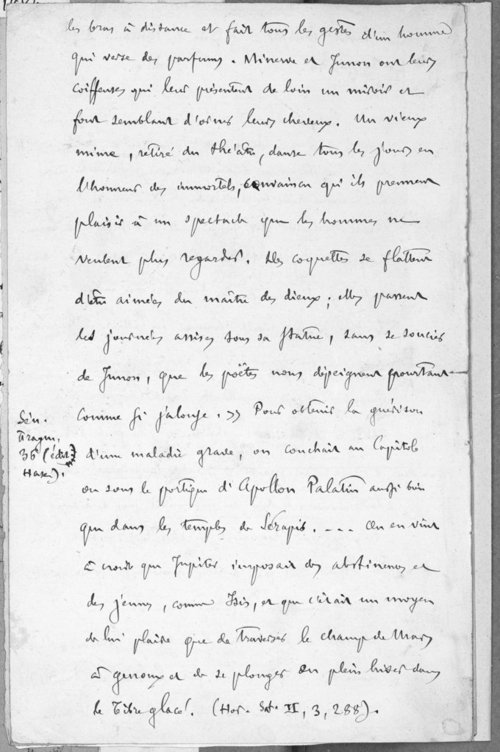 les bras à distance et fait tous les gestes d'un homme
qui verse des parfums. Minerve et Junon ont leurs
coiffeuses qui leur présentent de loin un miroir et
font semblant d'orner leurs cheveux. Un vieux
mime, retiré du théâtre, danse tous les jours en
l'honneur des immortels, convaincu qu'ils prennent
plaisir à un spectacle que les hommes ne
veulent plus regarder. Des coquettes se flattent
d'être aimées du maître des dieux; elles passent
les journées assises sous sa statue, sans se soucier
de Junon, que les poëtes nous dépeignent pourtant
comme si jalouse. » Pour obtenir la guérison
Sén.
Fragm.
36 (édit.
Haase).
d'une maladie grave, on couchait au Capitole
ou sous le portique d'Apollon Palatin aussi bien
que dans les temples de Sérapis. --- On en vint
à croire que Jupiter imposait des abstinences et
des jeûnes, comme Isis, et que c'était un moyen
de lui plaire que de traverser le champ de Mars
à genoux et de se plonger en plein hiver dans
le Tibre glacé. (Hor. Sat. II, 3, 288).